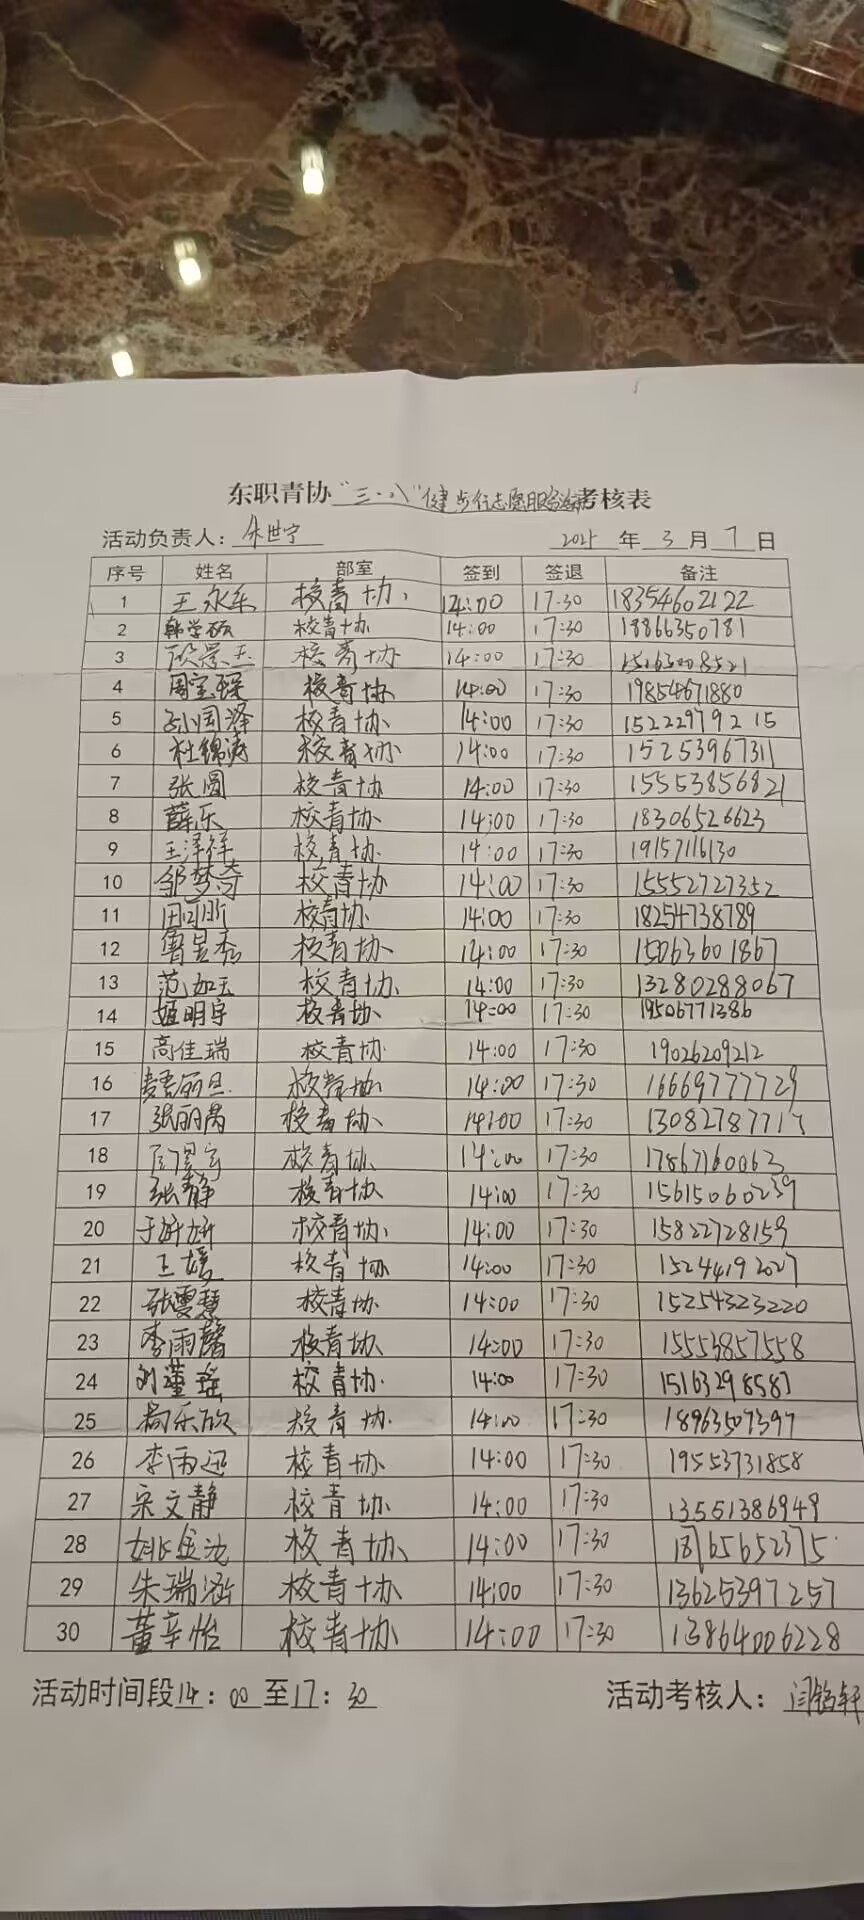 东职青协“三·八”健步行志愿服务活动考核表
活动负责人：朱世宁 2025 年 3 月 7 日
序号 姓名 部室 签到 签退 备注
1 王永乐 校青协 14:00 17:30 18354602122
2 韩学硕 校青协 14:00 17:30 18866350781
3 校青协 14:00 17:30
4 周宝琛 校青协 14:00 17:30 19854671880
5 孙国泽 校青协 14:00 17:30 15222979215
6 杜锦涛 校青协 14:00 17:30 15253967311
7 张圆 校青协 14:00 17:30 15553856821
8 薛乐 校青协 14:00 17:30 18306526623
9 王泽祥 校青协 14:00 17:30 19157116130
10 邹梦奇 校青协 14:00 17:30 15552727352
11 田可昕 校青协 14:00 17:30 18254738789
12 鲁昱秀 校青协 14:00 17:30 15063601867
13 范如玉 校青协 14:00 17:30 13280288067
14 姬明宇 校青协 14:00 17:30 19506771386
15 高佳瑞 校青协 14:00 17:30 19026209212
16 校青协 14:00 17:30 16669777729
17 校青协 14:00 17:30
18 校青协 14:00 17:30 17867160063
19 张静 校青协 14:00 17:30 15615060239
20 于妍妍 校青协 14:00 17:30 15822728159
21 王媛 校青协 14:00 17:30 15244192027
22 张雯慧 校青协 14:00 17:30 15254323220
23 李雨馨 校青协 14:00 17:30 15553857558
24 刘董瑶 校青协 14:00 17:30 15163298587
25 校青协 14:00 17:30 18963507397
26 李雨迅 校青协 14:00 17:30 19553731858
27 宋文静 校青协 14:00 17:30 13551386949
28 姚金池 校青协 14:00 17:30 18765652375
29 朱瑞涵 校青协 14:00 17:30 13625397257
30 董辛怡 校青协 14:00 17:30 13864006228
活动时间段14：00至17：30 活动考核人：闫铭轩